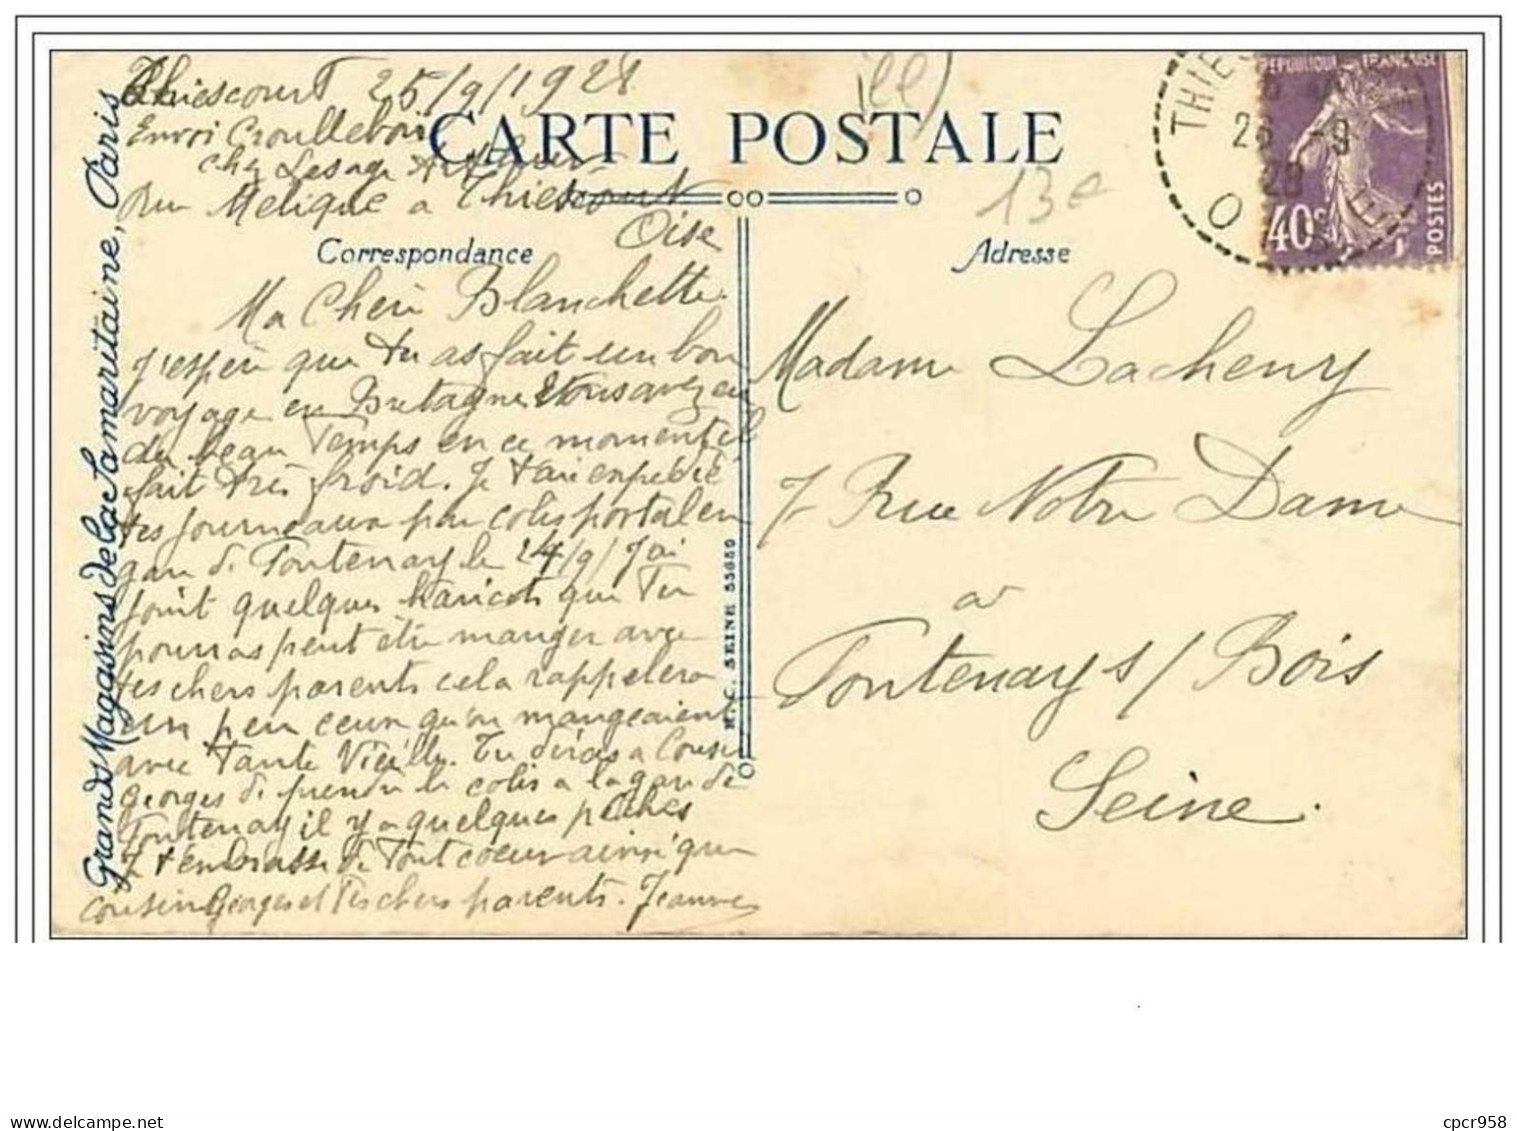 Thiescourt 25/9/1928
Envoi Croullebois
chez Lesage Arthur
Rue Melique a Thiescourt
Oise
CARTE POSTALE
Correspondance
Ma Cheri Blanchette
j'espère que tu as fait un bon
voyage en Bretagne vous avez eu
du beau Temps en ce moment il
fait très froid. Je t'ai expédié
tes journeaux par colis postal en
gare de Fontenay le 24/9/ J'ai
joint quelques haricots que Tu
pourras peut être manger avec
tes chers parents cela rappelera
un peu ceux qu'on mangeaient
avec Tante Vieille. Tu diras a Cousin
Georges de prendre le colis a la gare de
Fontenay il y a quelques pêches
Je t'embrasse de Tout coeur ainsi que
cousin Georges et Tes chers parents. Jeanne
Grands Magasins de la Samaritaine, Paris
R.C. SEINE 55689
13e
Adresse
Madame Lacheny
7 Rue Notre Dame
a
Fontenay s/ Bois
Seine.
THIES
OISE
28
REPUBLIQUE FRANÇAISE
40c
POSTES
cpcr958